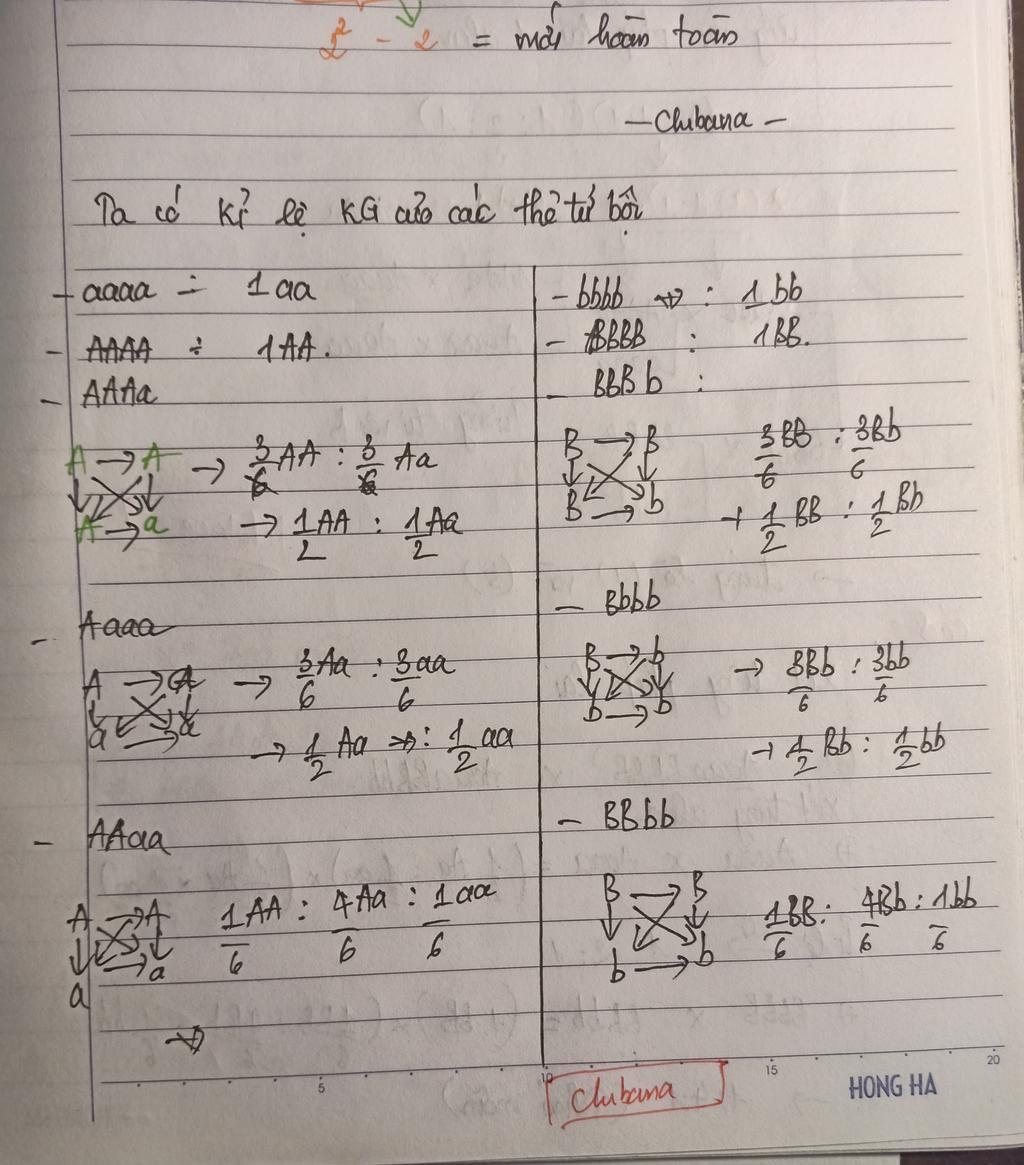 2² - 2 = mới hoàn toàn
- Chubana -
Ta có kỉ lệ KG của các thể tứ bội
- aaaa ÷ 1aa
- AAAA ÷ 1AA.
- AAAa
A → A → 3/6 AA : 3/6 Aa
A → a → 1/2 AA : 1/2 Aa
- Aaaa
A → a → 3/6 Aa : 3/6 aa
a → a → 1/2 Aa : 1/2 aa
- AAaa
A → A 1/6 AA : 4/6 Aa : 1/6 aa
a → a
- bbbb : 1bb
- BBBB : 1BB.
- BBBb :
B → B 3/6 BB : 3/6 Bb
B → b → 1/2 BB : 1/2 Bb
- Bbbb
B → b → 3/6 Bb : 3/6 bb
b → b → 1/2 Bb : 1/2 bb
- BBbb
B → B 1/6 BB : 4/6 Bb : 1/6 bb
b → b
5 10 15 20
Chubana
HONG HA